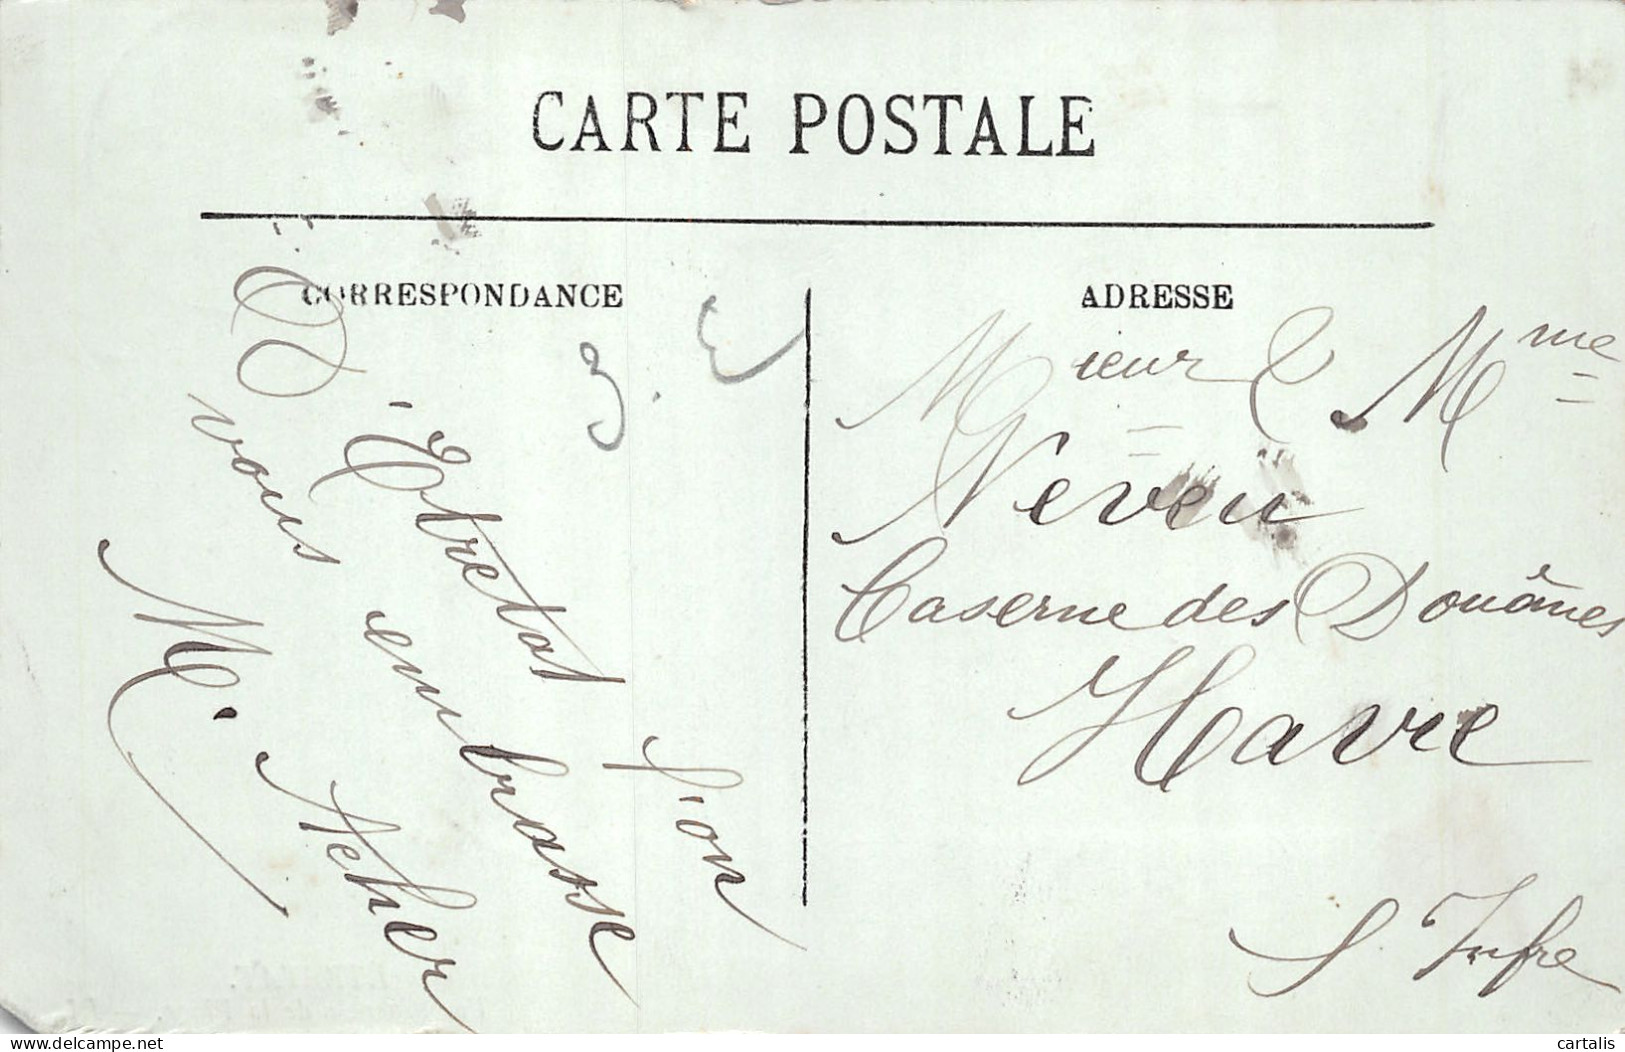 CARTE POSTALE
CORRESPONDANCE
ADRESSE
D'Etretat l'on
vous embrasse
M. Acher
Mieur & Mme
Neveu
Caserne des Douânes
Havre
S. Infre
cartalis
delcampe.net